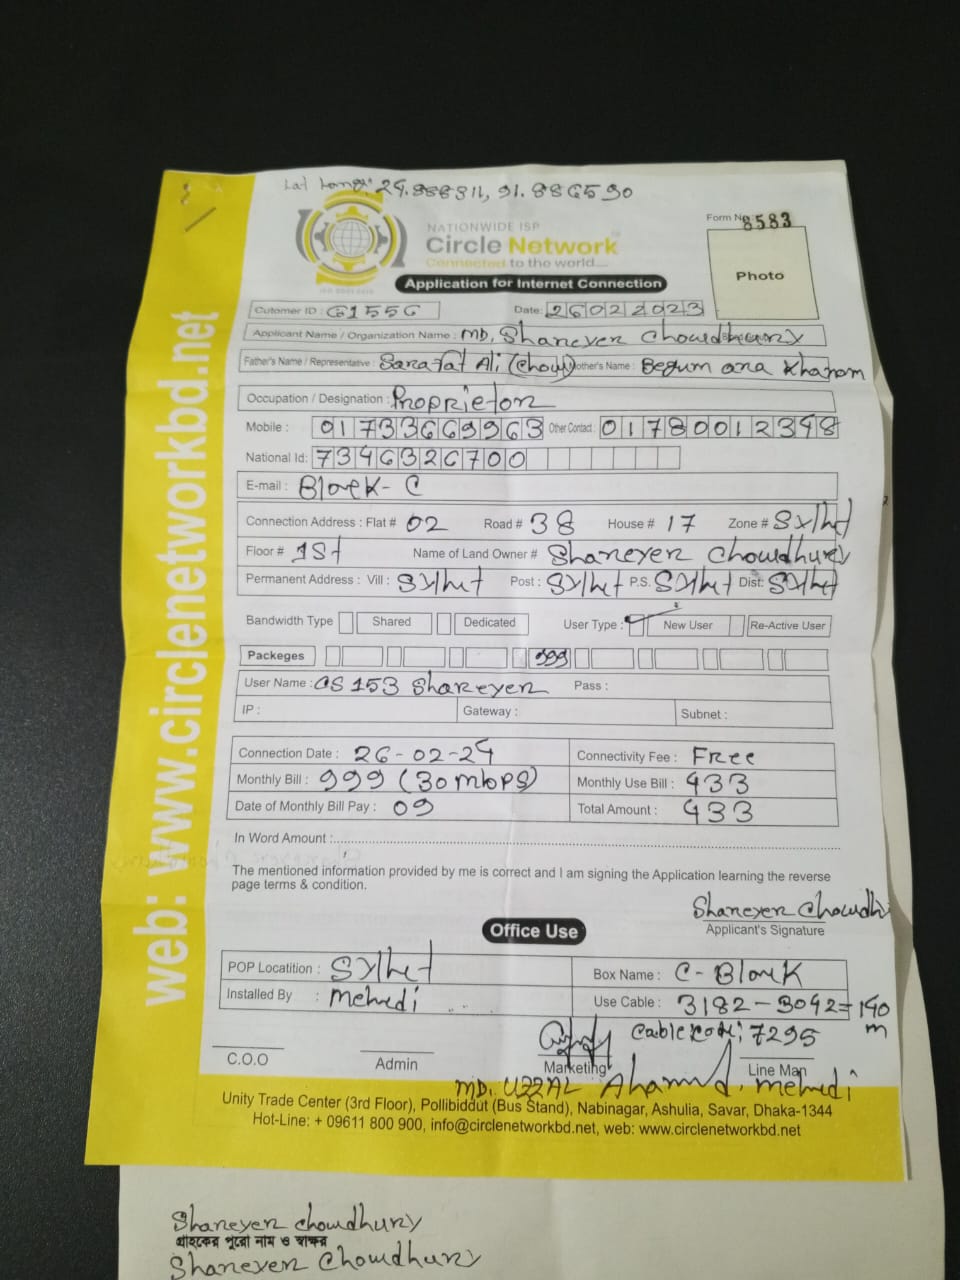 Lat Long: 24.888311, 91.886590
NATIONWIDE ISP
Circle Network
Connected to the world....
Form No: 8583
Photo
Application for Internet Connection
Cutomer ID : G1556 Date: 26022023
Applicant Name / Organization Name : MD. Shareyer Chowdhury
Father's Name / Representative : Sarafat Ali (Chow) Mother's Name : Begum ara Khanom
Occupation / Designation : Proprietor
Mobile : 01733669963 Other Contact : 01780012398
National Id: 7346326700
E-mail : Block - C
Connection Address : Flat # 02 Road # 38 House # 17 Zone # Sylhet
Floor # 1St Name of Land Owner # Shareyer Chowdhury
Permanent Address : Vill : Sylhet Post : Sylhet P.S. Sylhet Dist: Sylhet
Bandwidth Type Shared Dedicated User Type : New User Re-Active User
Packeges 999
User Name : CS 153 Shareyer Pass :
IP : Gateway : Subnet :
Connection Date : 26-02-24 Connectivity Fee : Free
Monthly Bill : 999 (30 mbps) Monthly Use Bill : 433
Date of Monthly Bill Pay : 09 Total Amount : 433
In Word Amount :
The mentioned information provided by me is correct and I am signing the Application learning the reverse
page terms & condition.
Shareyer Chowdh
Applicant's Signature
Office Use
POP Locatition : Sylhet Box Name : C - Block
Installed By : Mehedi Use Cable : 3182 - 3042 = 140 m
Cable code: 7295
C.O.O Admin Marketing Line Man
MD. UZZAL Ahamed. Mehedi
Unity Trade Center (3rd Floor), Pollibiddut (Bus Stand), Nabinagar, Ashulia, Savar, Dhaka-1344
Hot-Line: + 09611 800 900, info@circlenetworkbd.net, web: www.circlenetworkbd.net
web: www.circlenetworkbd.net
Shareyer Chowdhury
গ্রাহকের পুরো নাম ও স্বাক্ষর
Shareyer Chowdhury